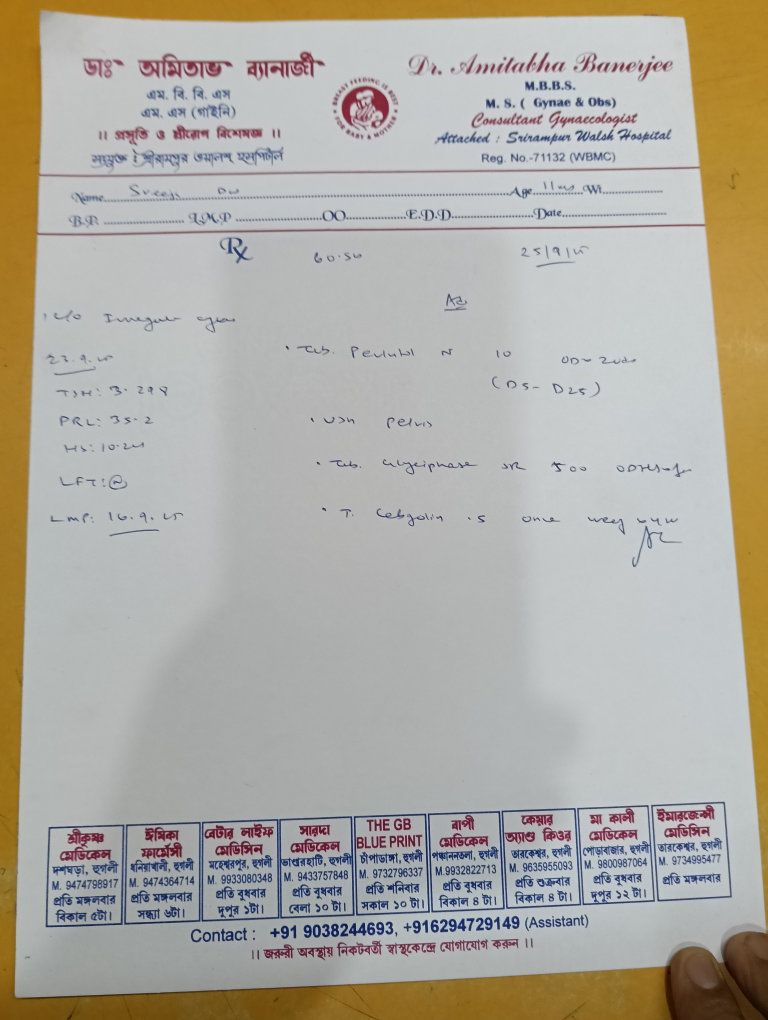 ডাঃ অমিতাভ ব্যানার্জী
এম. বি. বি. এস
এম. এস (গাইনি)
।। প্রসূতি ও স্ত্রীরোগ বিশেষজ্ঞ ।।
সংযুক্ত : শ্রীরামপুর ওয়ালশ হসপিটাল
BREAST FEEDING IS BEST
FOR BABY & MOTHER
Dr. Amitabha Banerjee
M.B.B.S.
M. S. ( Gynae & Obs)
Consultant Gynaecologist
Attached : Srirampur Walsh Hospital
Reg. No.-71132 (WBMC)
Name Age Wt.
B.P. L.M.P OO E.D.D Date
Rx 60.50 25/9/25
c/o Irregular
23.9.25
TSH: 3.298
PRL: 35.2
LFT: N
LMP: 16.9.25
Adv
Tab. N 10 OD
(D5 - D25)
USG Pelvis
Tab. Glyciphase SR 500
T. Cabgolin .5 once
শ্রীকৃষ্ণ মেডিকেল
দশঘড়া, হুগলী
M. 9474798917
প্রতি মঙ্গলবার
বিকাল ৫টা।
ঈষিকা ফার্মেসী
ধনিয়াখালী, হুগলী
M. 9474364714
প্রতি মঙ্গলবার
সন্ধ্যা ৬টা।
বেটার লাইফ মেডিসিন
মহেশ্বরপুর, হুগলী
M. 9933080348
প্রতি বুধবার
দুপুর ১টা।
সারদা মেডিকেল
ভাণ্ডারহাটি, হুগলী
M. 9433757848
প্রতি বুধবার
বেলা ১০ টা।
THE GB
BLUE PRINT
চাঁপাডাঙ্গা, হুগলী
M. 9732796337
প্রতি শনিবার
সকাল ১০ টা।
বাপী মেডিকেল
পঞ্চাননতলা, হুগলী
M.9932822713
প্রতি বুধবার
বিকাল ৪ টা।
কেয়ার অ্যাণ্ড কিওর
তারকেশ্বর, হুগলী
M. 9635955093
প্রতি শুক্রবার
বিকাল ৪ টা।
মা কালী মেডিকেল
পোড়াবাজার, হুগলী
M. 9800987064
প্রতি বুধবার
দুপুর ১২ টা।
ইমারজেন্সী মেডিসিন
তারকেশ্বর, হুগলী
M. 9734995477
প্রতি মঙ্গলবার
Contact : +91 9038244693, +916294729149 (Assistant)
।। জরুরী অবস্থায় নিকটবর্তী স্বাস্থ্যকেন্দ্রে যোগাযোগ করুন ।।